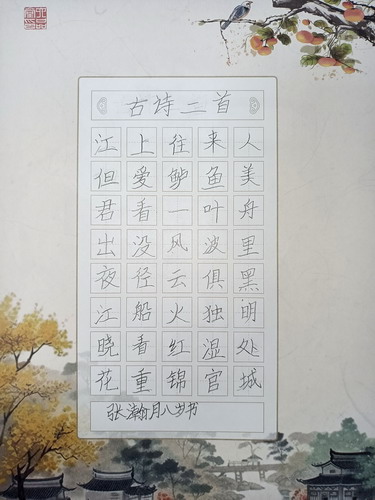 古诗二首
江上往来人
但爱鲈鱼美
君看一叶舟
出没风波里
夜径云俱黑
江船火独明
晓看红湿处
花重锦官城
张瀚月八岁书